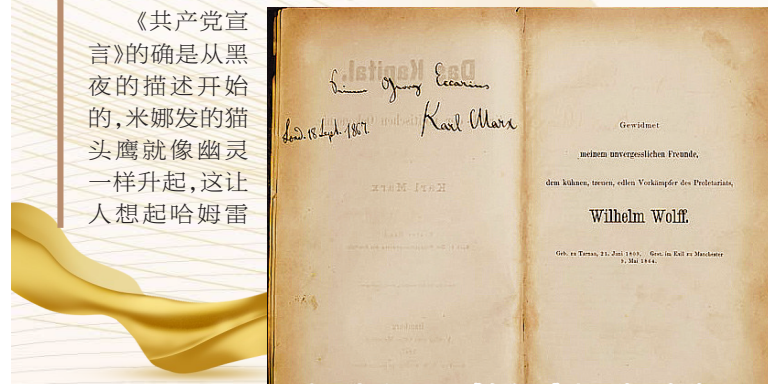 《共产党宣
言》的确是从黑
夜的描述开始
的,米娜发的猫
头鹰就像幽灵
一样升起,这让
人想起哈姆雷
Georg Eccarius
Lond. 18 Sept. 1867.
Karl Marx
Das Kapital.
Karl Marx
Hamburg
Gewidmet
meinem unvergesslichen Freunde,
dem kühnen, treuen, edlen Vorkämpfer des Proletariats,
Wilhelm Wolff.
Geb. zu Tarnau, 21. Juni 1809. Gest. im Exil zu Manchester
9. Mai 1864.